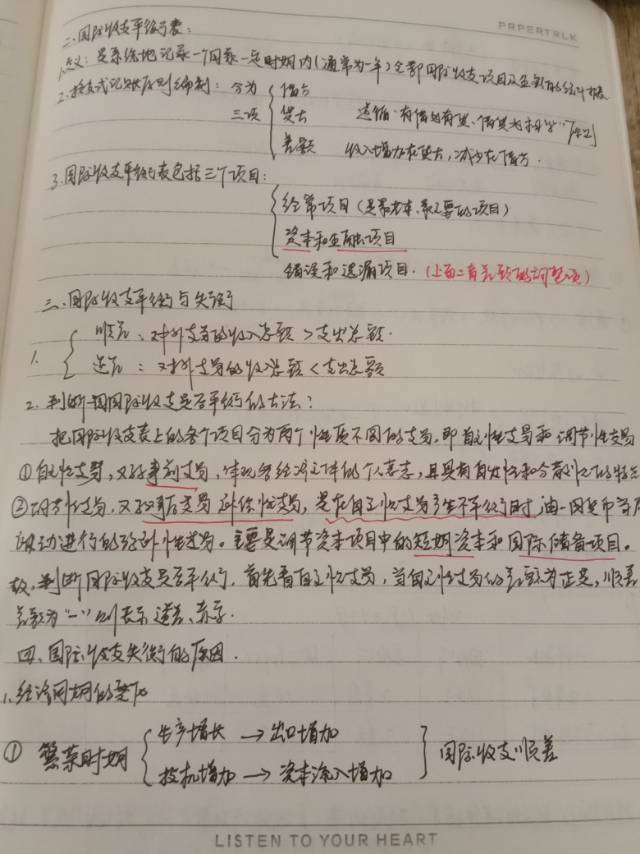 PAPERTALK
二、国际收支平衡表:
1.定义: 是系统地记录一个国家一定时期内(通常为一年)全部国际收支项目及金额的统计报表
2.按复式记账原则编制: 分为三项
借方
贷方 遵循"有借必有贷、借贷必相等"原则
差额 收入增加在贷方,减少在借方.
3.国际收支平衡表包括三个项目:
经常项目(是最基本、最重要的项目)
资本和金融项目
错误和遗漏项目.(上面二者差额的调整项)
三、国际收支平衡与失衡
1.
顺差: 对外交易的收入总额>支出总额.
逆差: 对外交易的收入总额<支出总额
2.判断一国国际收支是否平衡的方法?
把国际收支表上的各个项目分为两个性质不同的交易,即自主性交易和调节性交易
①自主性交易,又称事前交易,体现各经济主体的个人意志,且具有自发性和分散性的特点
②调节性交易,又称事后交易 补偿性交易,是在自主性交易产生不平衡时,由一国货币当局
被动进行的弥补性交易.主要是调节资本项目中的短期资本和国际储备项目.
故,判断国际收支是否平衡,首先看自主性交易,当自主性交易的差额为正是,顺差
差额为"一"则表示逆差、赤字.
四、国际收支失衡的原因.
1.经济周期的变化
① 繁荣时期
生产增长 → 出口增加
投机增加 → 资本流入增加
国际收支顺差
LISTEN TO YOUR HEART